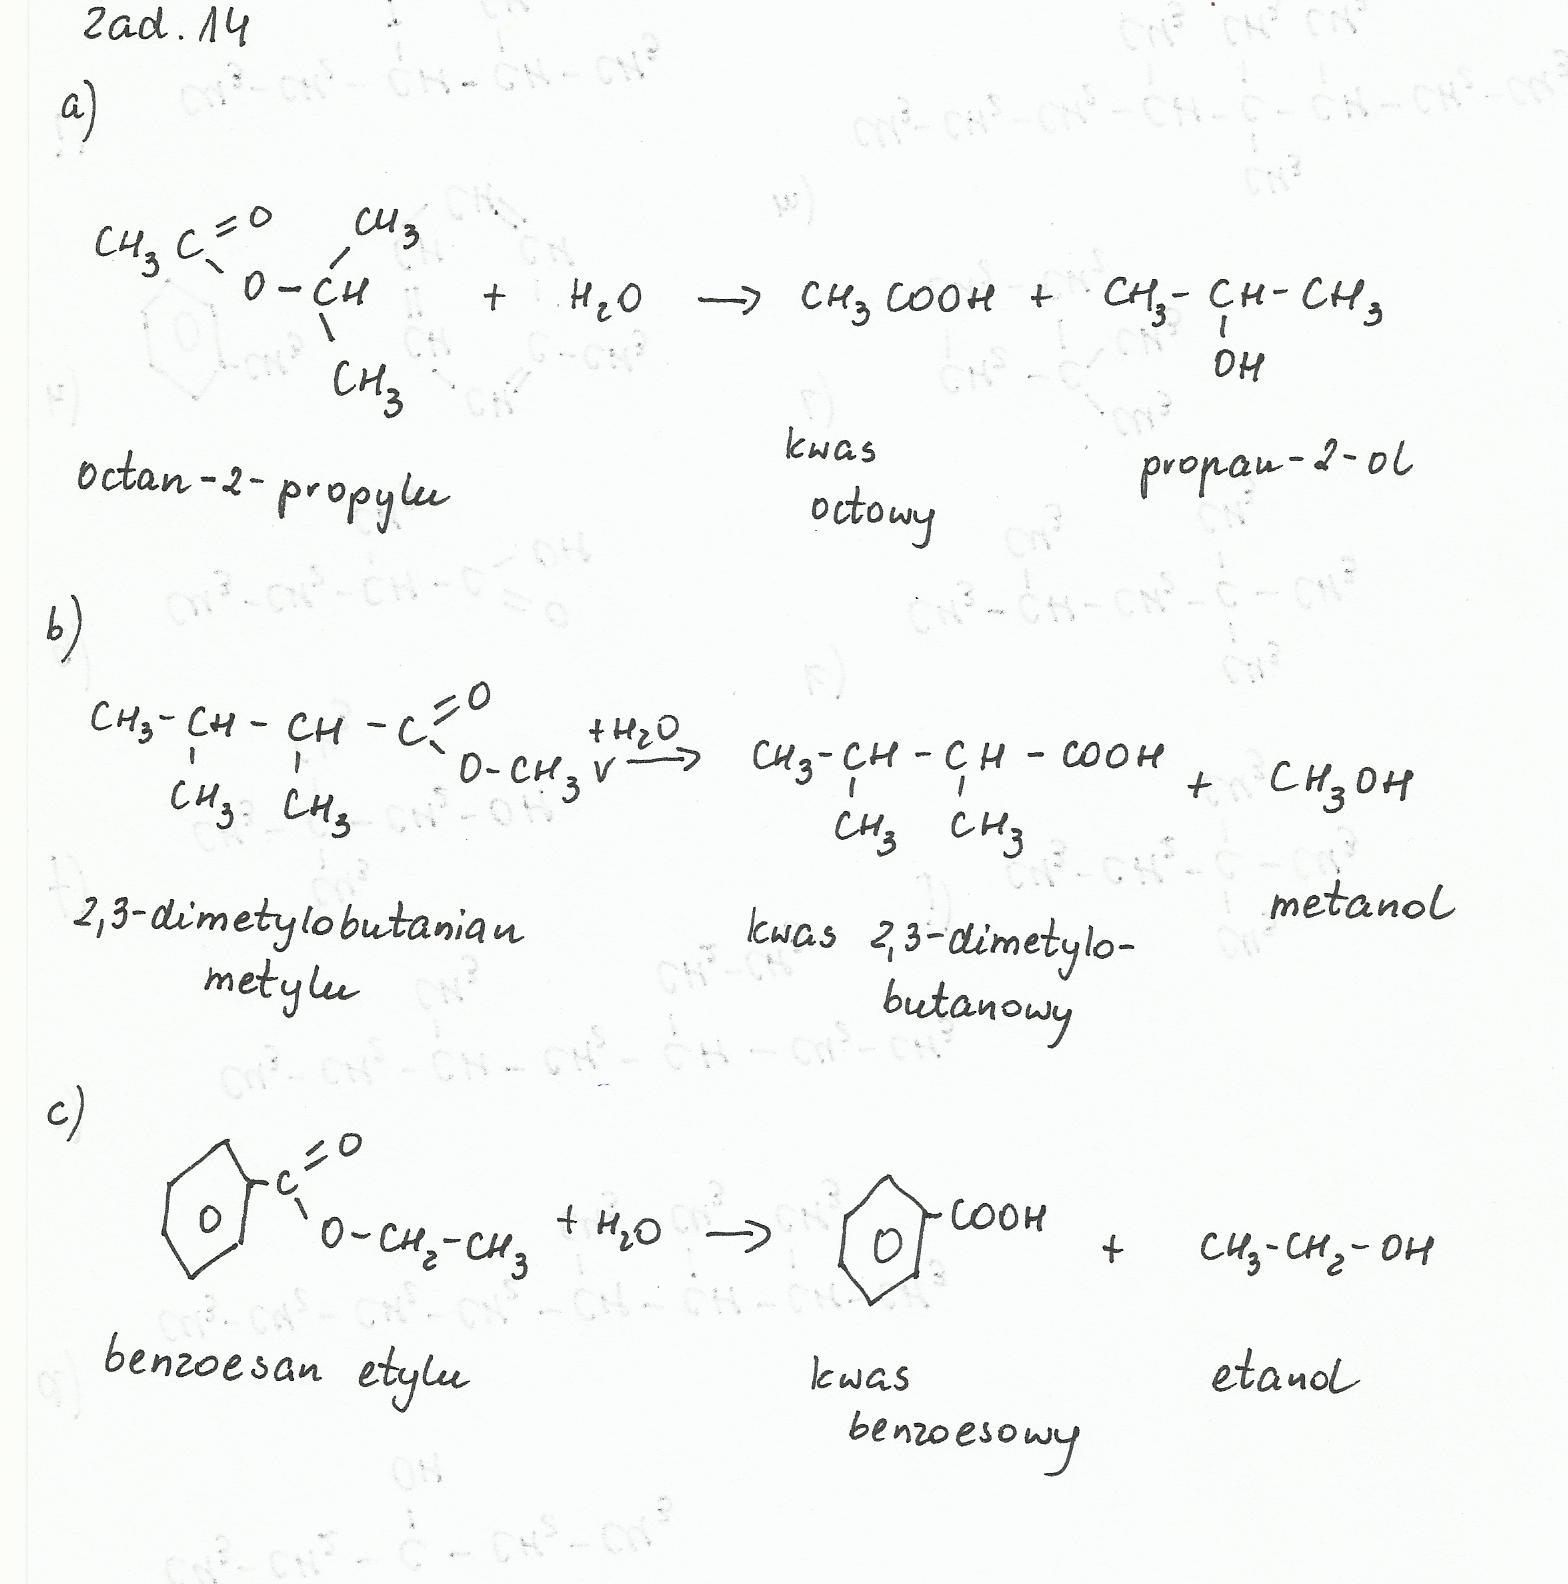 zad. 14
a)
CH3 C=O O-CH CH3 CH3 + H2O → CH3COOH + CH3-CH-CH3 OH
octan-2-propylu kwas octowy propan-2-ol
b)
CH3-CH-CH-C=O O-CH3 CH3 CH3 +H2O → CH3-CH-CH-COOH CH3 CH3 + CH3OH
2,3-dimetylobutanian metylu kwas 2,3-dimetylo-butanowy metanol
c)
C=O O-CH2-CH3 + H2O → COOH + CH3-CH2-OH
benzoesan etylu kwas benzoesowy etanol